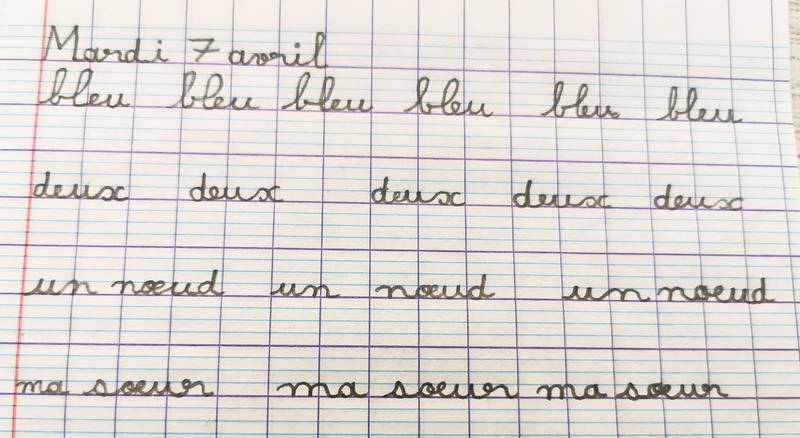 Mardi 7 avril
bleu bleu bleu bleu bleu bleu
deux deux deux deux deux
un nœud un nœud un nœud
ma sœur ma sœur ma sœur